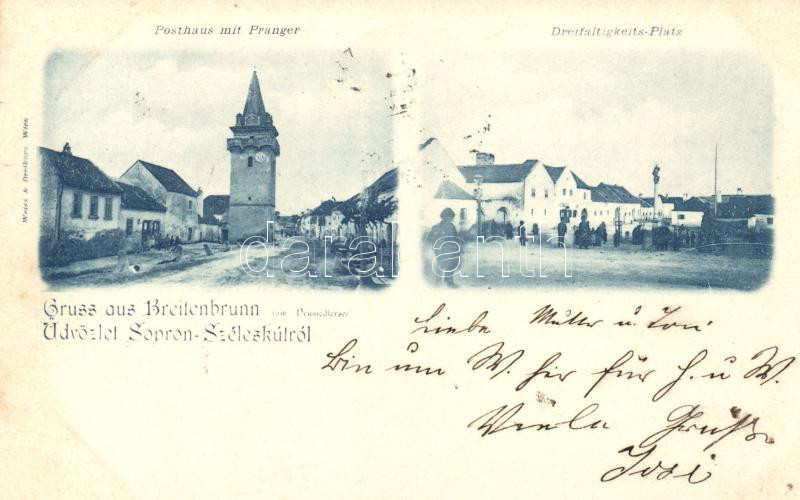 Posthaus mit Pranger
Dreifaltigkeits-Platz
Gruss aus Breitenbrunn (am Neusiedlersee)
Üdvözlet Sopron-Széleskútról
Liebe Mutter u. Toni
Bin um W. hier für H. u W.
Viele Grüße
Josi
darabanth